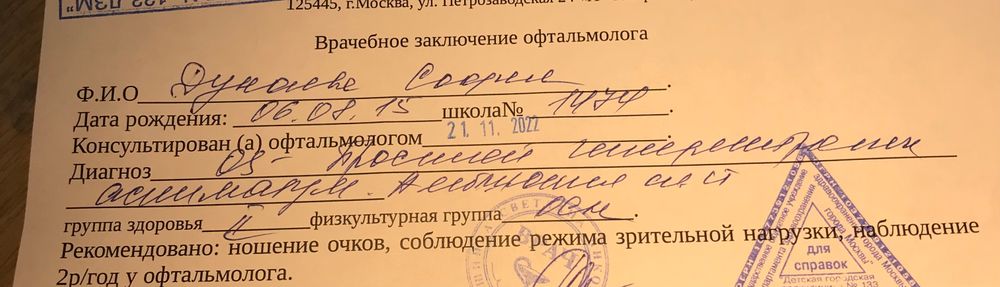 125445, г.Москва, ул. Петрозаводская
Врачебное заключение офтальмолога
Ф.И.О Дунаева София.
Дата рождения: 06.08.15 школа№ 1474.
Консультирован (а) офтальмологом 21. 11. 2022.
Диагноз OS - простой гиперметропич
астигматизм. Амблиопия
группа здоровья II физкультурная группа осн.
Рекомендовано: ношение очков, соблюдение режима зрительной нагрузки, наблюдение
2р/год у офтальмолога.
ВРАЧ
для
справок
Детская городская
№ 133